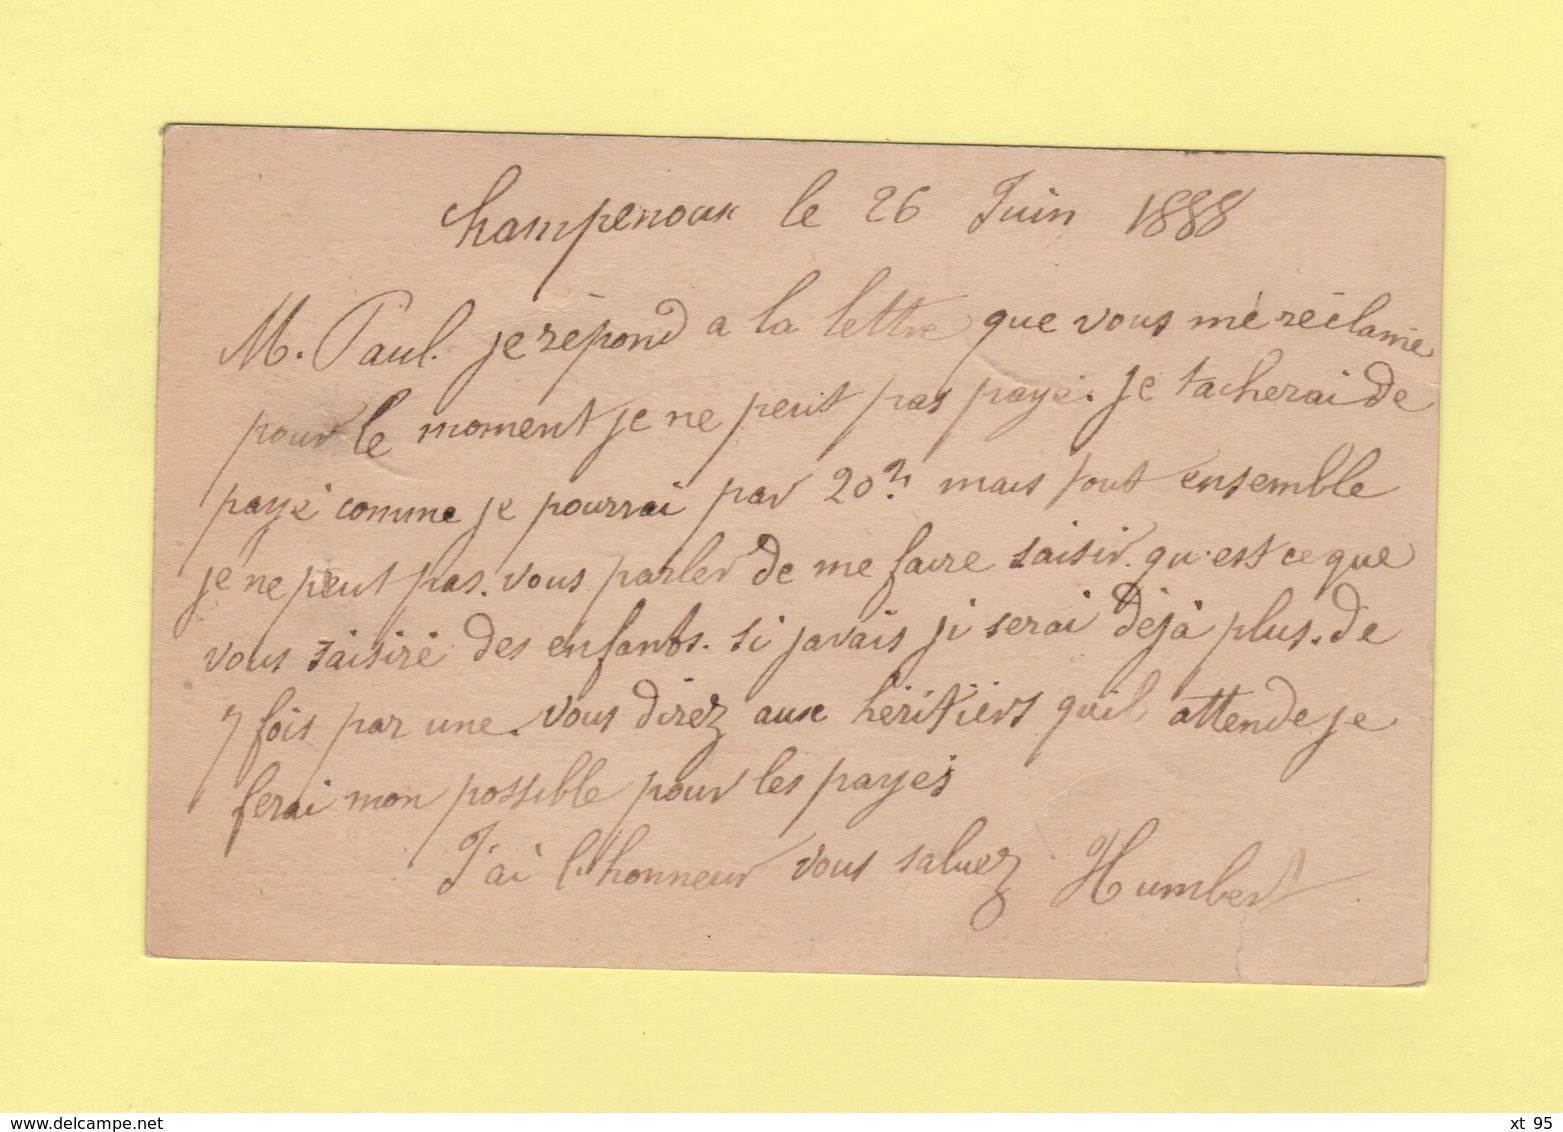 Champenoux le 26 Juin 1888
M. Paul. je répond a la lettre que vous mé réclamé
pour le moment je ne peut pas payé. Je tacherai de
payé comme je pourrai par 20f mais tout ensemble
je ne peut pas. vous parler de me faire saisir. qu'est ce que
vous saisiré des enfants. si javais ji serai déja plus. de
7 fois par une. vous direz aux héritiers quil attende je
ferai mon possible pour les payés
J'ai l'honneur vous saluez Humbert
xt 95